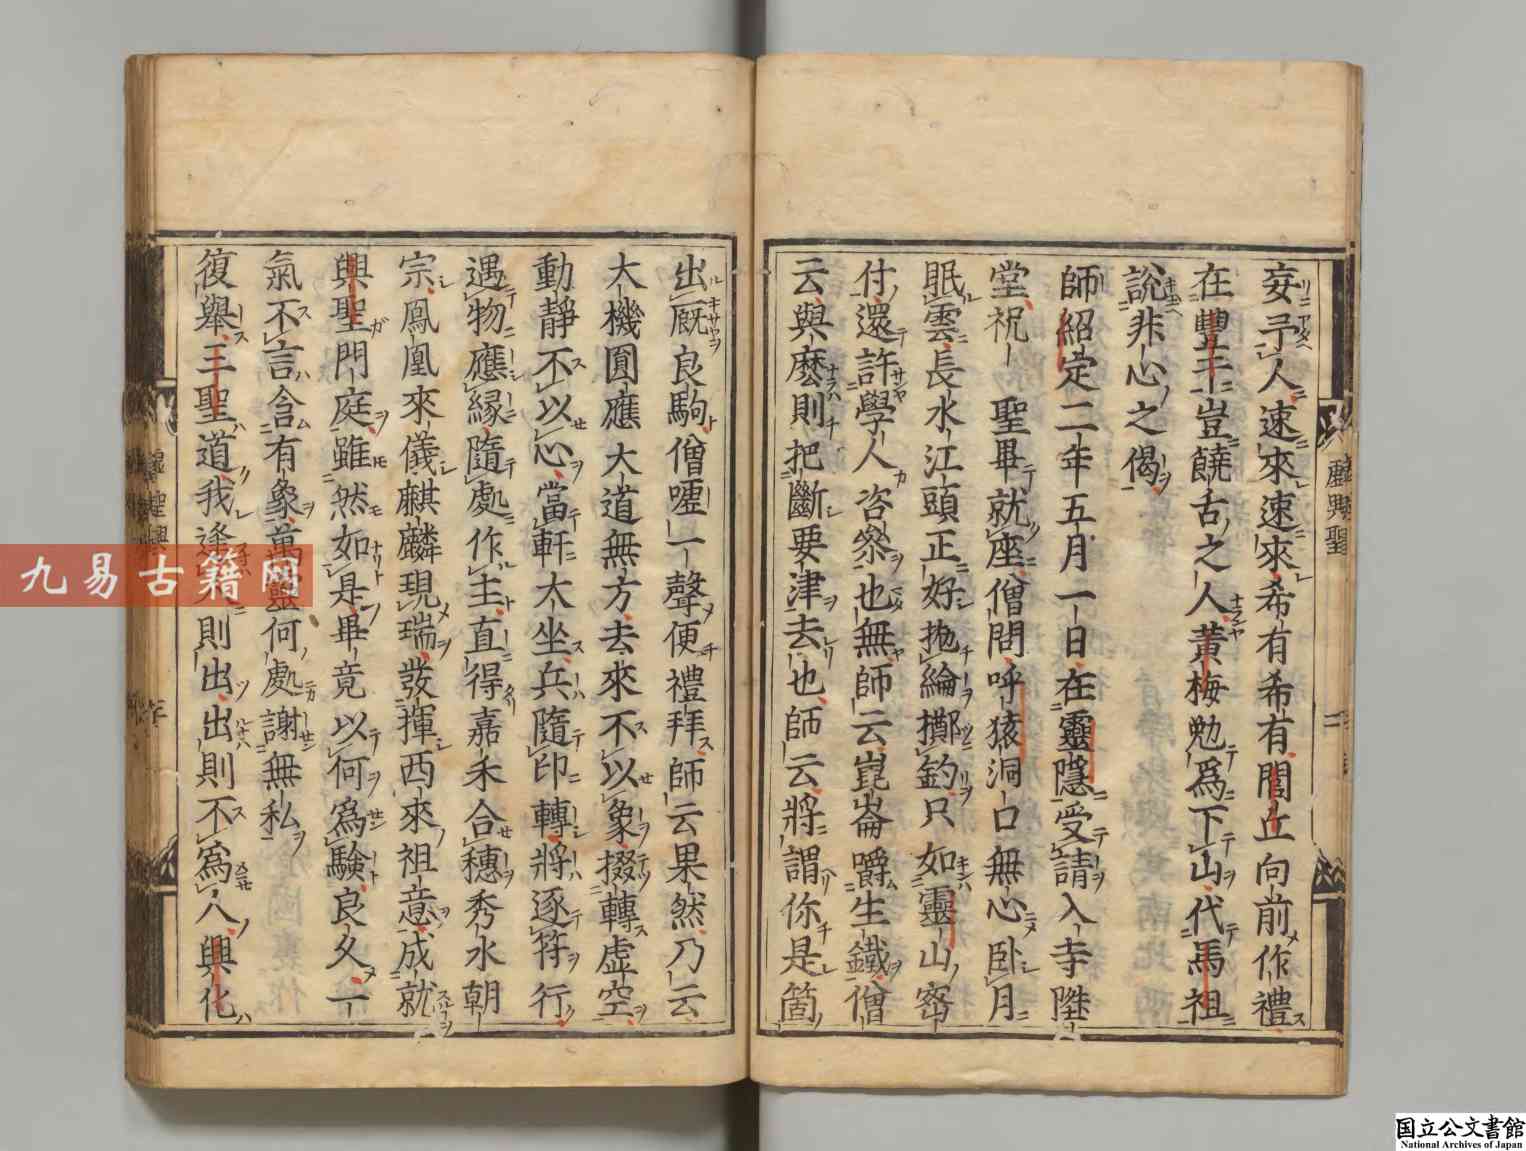 妄予人速來速來希有希有閭丘向前作禮
在豐干豈饒舌之人黃梅勉爲下山代馬祖
說非心之偈
師紹定二年五月一日在靈隱受請入寺陞
堂祝 聖畢就座僧問呼猿洞口無心臥月
眠雲長水江頭正好拋綸擲釣只如靈山密
付還許學人咨參也無師云崑崙嚼生鐵僧
云與麼則把斷要津去也師云將謂你是箇
出厩良駒僧㘁一聲便禮拜師云果然乃云
大機圓應大道無方去來不以象掇轉虛空
動靜不以心當軒大坐兵隨印轉將逐符行
遇物應緣隨處作主直得嘉禾合穗秀水朝
宗鳳凰來儀麒麟現瑞發揮西來祖意成就
興聖門庭雖然如是畢竟以何爲驗良久一
氣不言含有象萬靈何處謝無私
復舉三聖道我逢人則出出則不爲人興化
九易古籍网
国立公文書館
National Archives of Japan